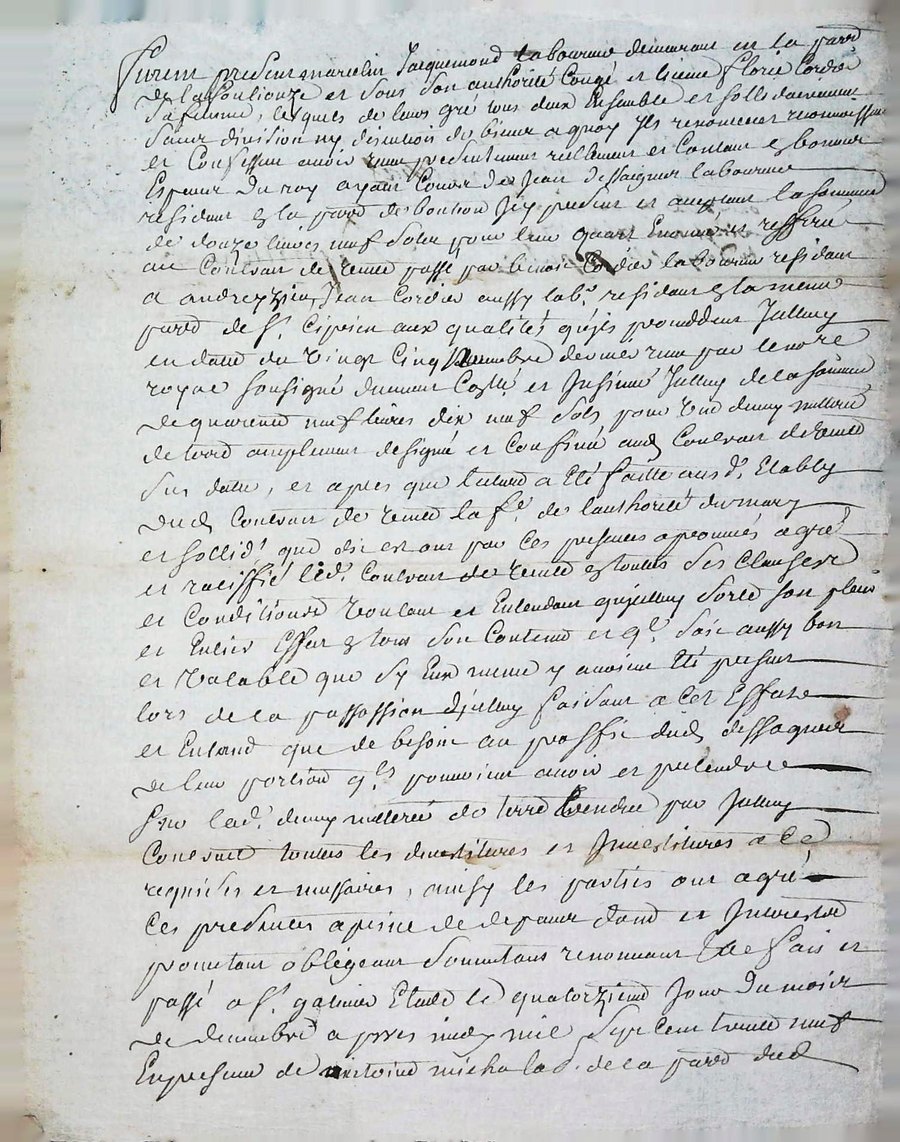 Furent present marcelin Jacquemond laboureur demeurant en la parr.e
de la fouliouze et sous son authorité Congé et licence florie Cordier
sa femme, lesquels de leurs gré tous deux Ensemble et sollidairement
sans division ny discution de biens a quoy Ils renoncent reconnoissent
et Confessent avoir reçu presentement reellement et Contant en bonnes
Especes du roy ayant Cours de Jean dessagnes laboureur
resident en la parr.e de bonson Icy present et acceptant la somme
de douze livres neuf sols pour leur quart Enoncé et resservé
au Contrat de vente passé par benoit Cordier laboureur residant
a andrezieu, Jean Cordier aussy lab.r residant en la meme
parr.e de S.t Ciprien aux qualités qu'ils procedent Jcelluy
en datte du vingt Cinq novembre dernier reçu par le no.re
royal soussigné duement Collé et Insinué Jcelluy de la somme
de quarente neuf livres dix neuf sols pour une demy metteré
de terre amplement designé et Confinée aud. Contrat de vente
sus datté, et apres que lecture a eté faitte ausd. Etably
dud. Contrat de vente la f.e de l'authorité du mary
et sollid.t que dit est ont par Ces presentes aprouvés agréé
et ratiffié led. Contrat de vente en toutes ses Clauses
et Conditions voulant et Entendant qu'jcelluy sorte son plein
et Entier Effet en tout son Contenu et q.l soit aussy bon
et valable que sy Eux meme y avoint eté present
lors de la passassion d'jcelluy faisant a Cet Effet
et Entend que de besoin au proffit dud. dessagnes
de leur portion q.ls pouvoint avoir et pretendre
sur lad. demy metterée de terre vendue par Jcelluy
Contrat toutes les devestitures et Investitures a Ce
requises et necessaires, ainsy les parties ont agréé
Ces presentes a peine de depens dom.e et Interest
promettant obligeant soumettant renonceant &c fait et
passé a S.t galmier Etude le quatorzieme Jour du mois
de decembre apres midy mil sept cent trente neuf
En presence de antoine michalod. de la parr.e dud.